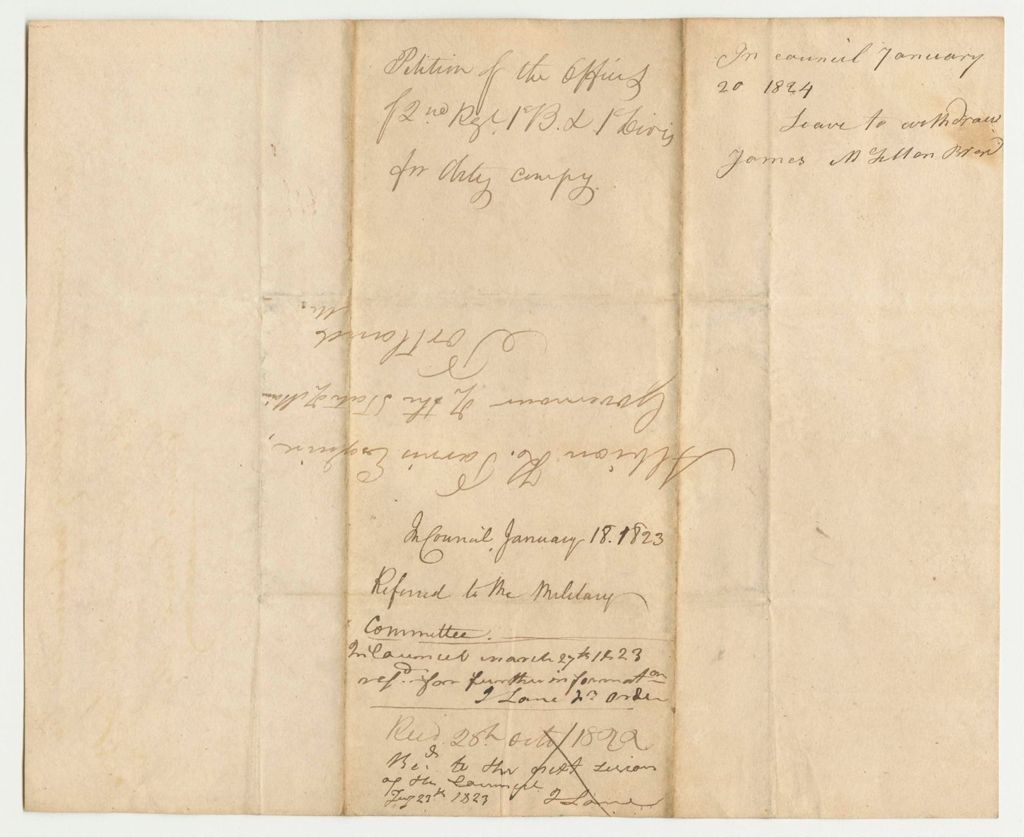 Petition of the Officers
of 2nd Regt. 1st B. & 1st Divis
for Arty compy.
In council January
20 1824
Leave to withdraw
James McLellan Br ord
Albion K. Parris Esquire,
Governour of the State of Maine
Portland
Me.
In Council, January 18. 1823
Referred to the Military
Committee.
In Council march 27th 1823
refd. for further information
J Lane pr order
Recd. 28th Octo/1822
Red. to the next session
of the Council
Aug 23th 1823 J Lane